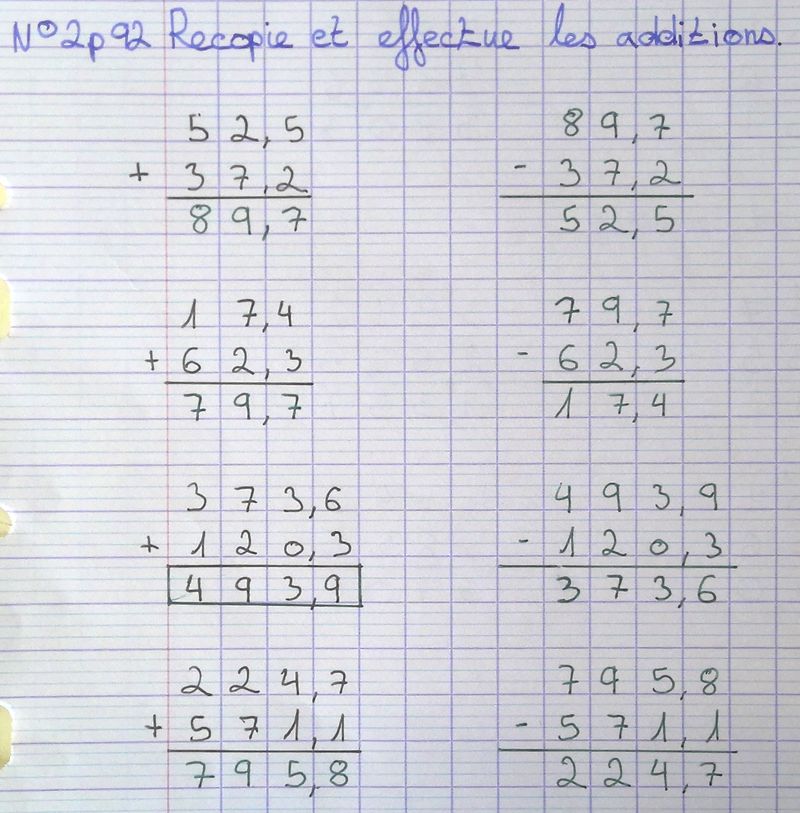 N°2p92 Recopie et effectue les additions.
52,5 89,7
+ 37,2 - 37,2
89,7 52,5
17,4 79,7
+ 62,3 - 62,3
79,7 17,4
373,6 493,9
+ 120,3 - 120,3
493,9 373,6
224,7 795,8
+ 571,1 - 571,1
795,8 224,7